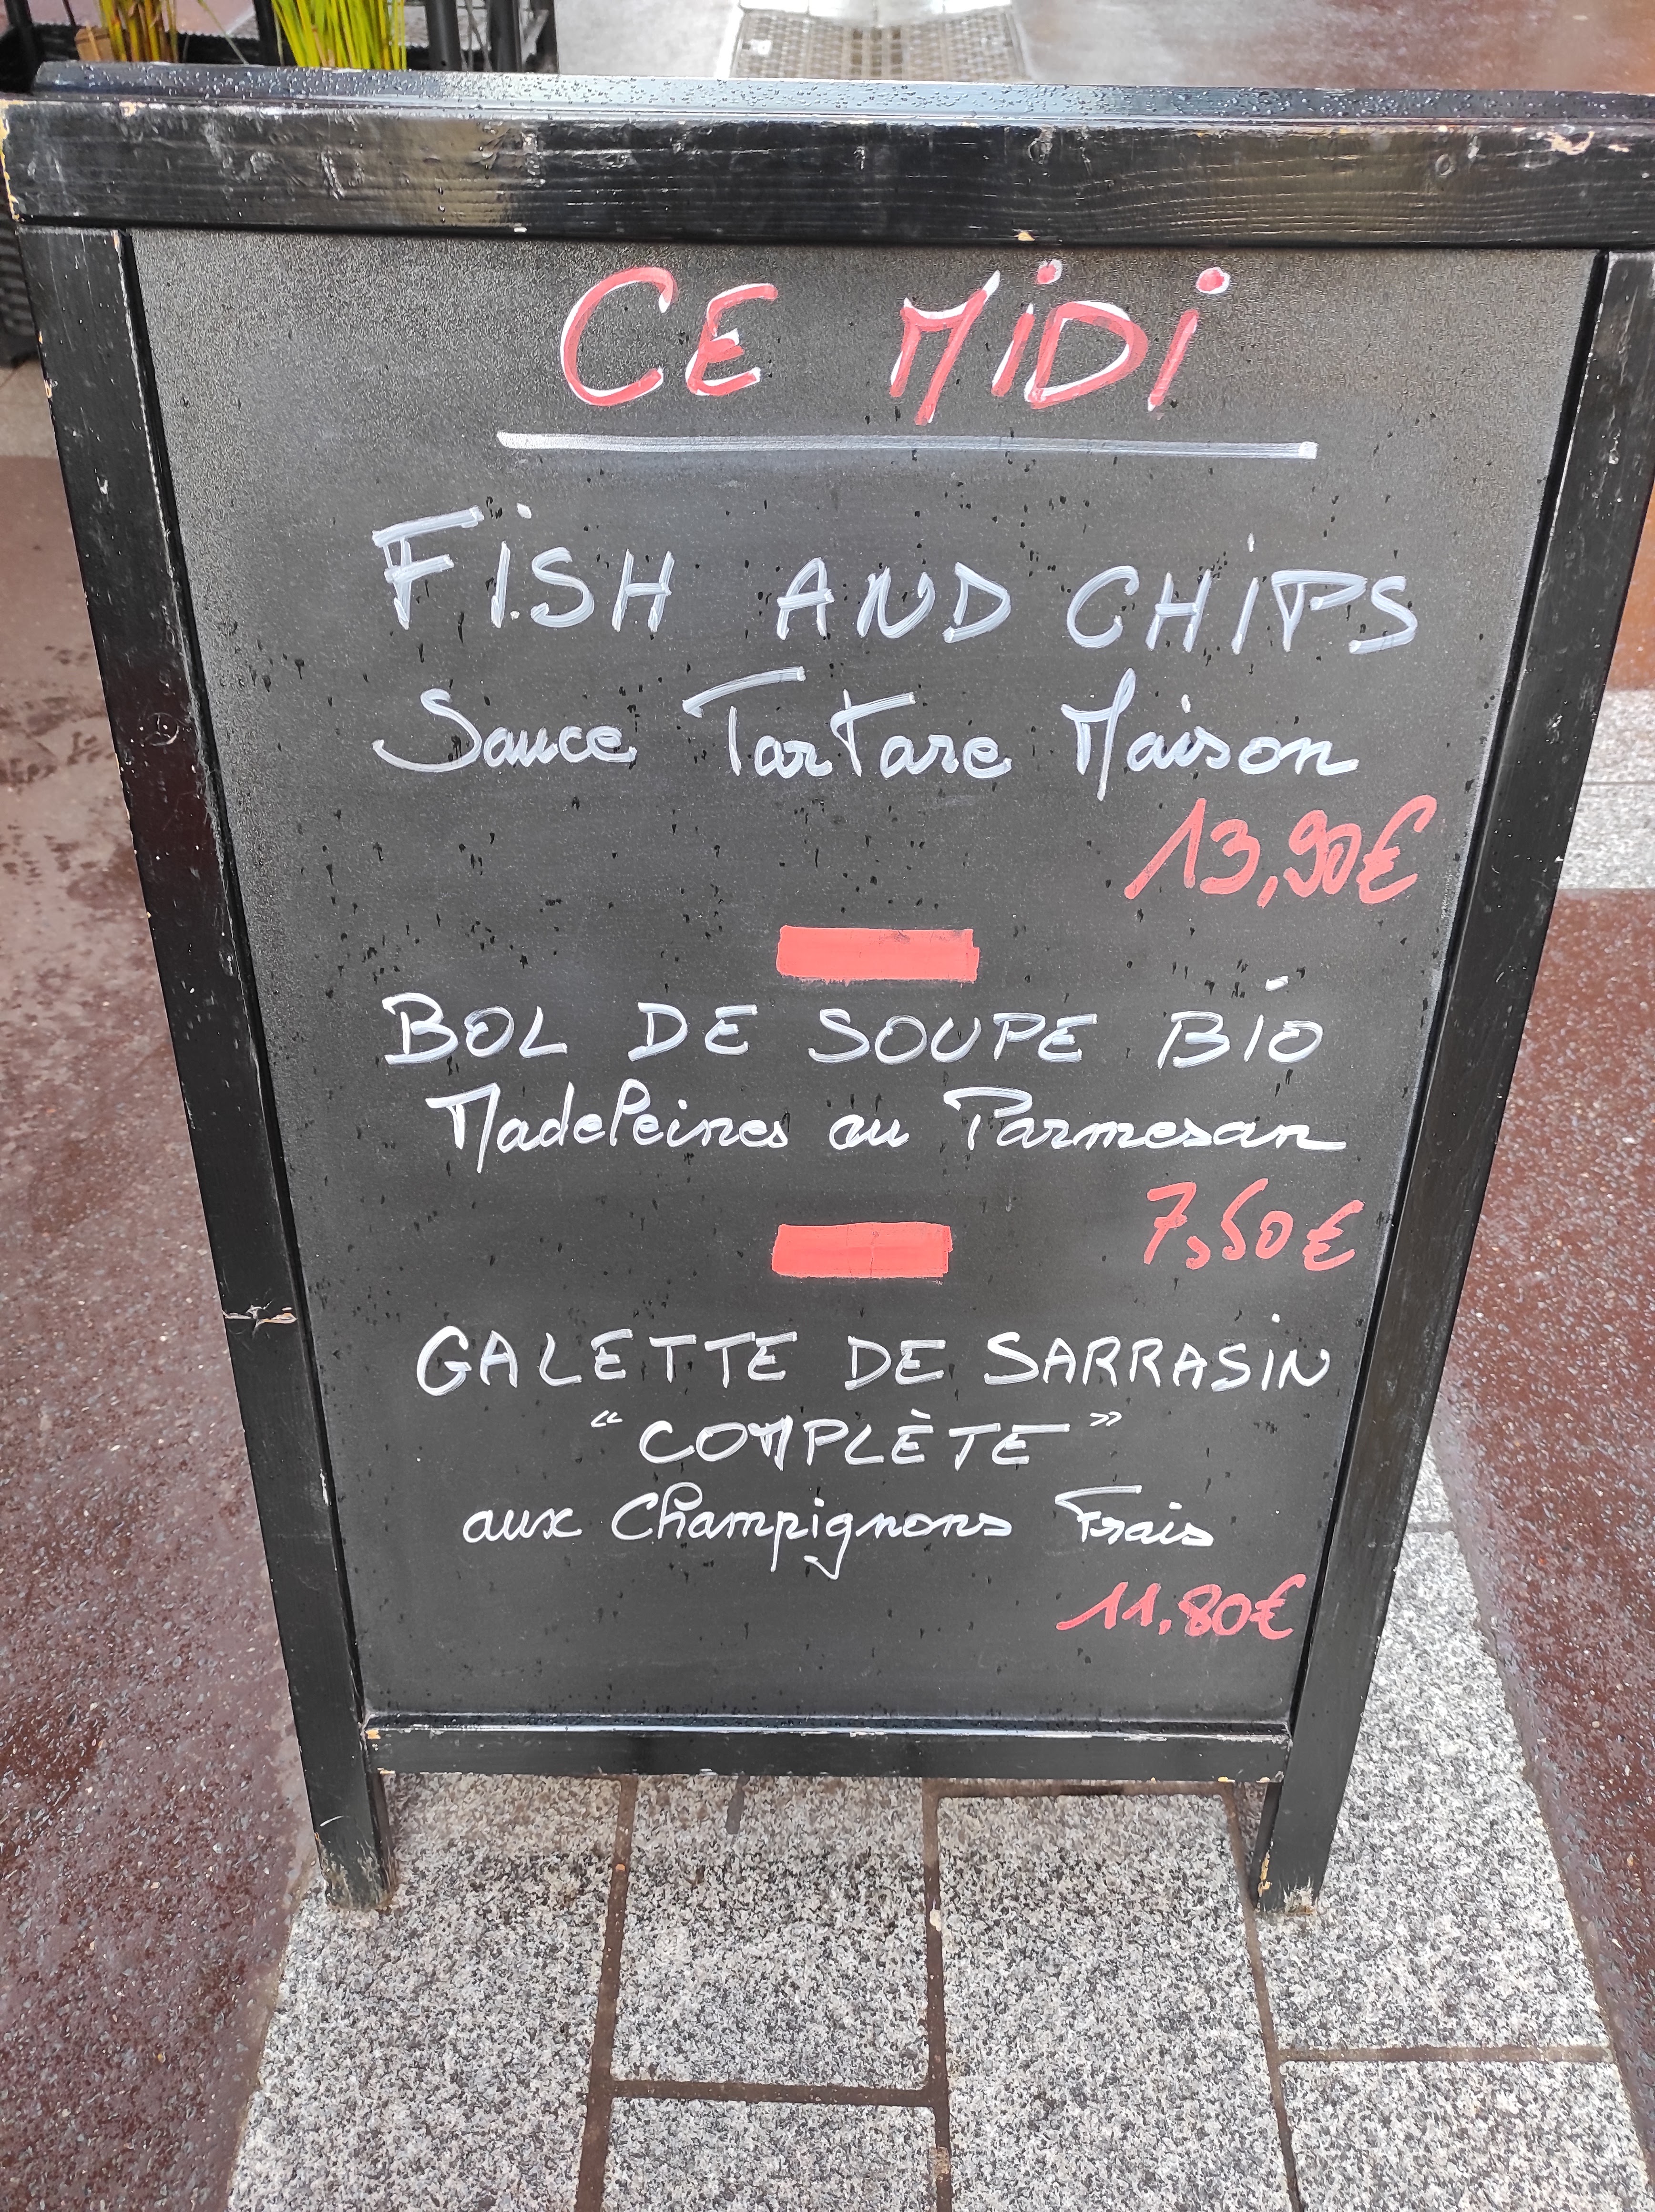 CE MiDi
FiSH AND CHiPS
Sauce Tartare Maison
13,90€
BOL DE SOUPE BiO
Madeleines au Parmesan
7,50€
GALETTE DE SARRASiN
“COMPLÈTE”
aux Champignons Frais
11,80€